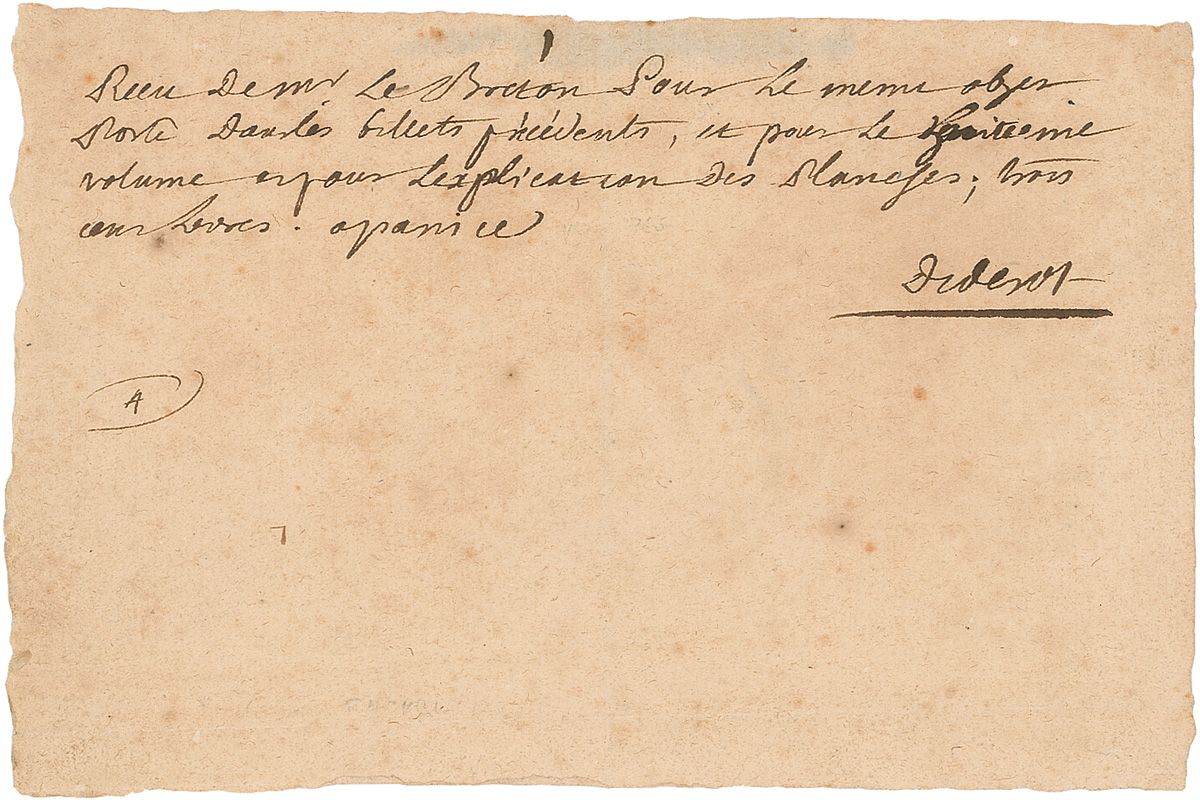 Reçu de mr Le Breton pour le meme objet
porté dans les billets précédents, et pour le huitieme
volume et pour l'explication des planches; trois
cent livres. a paris ce
Diderot
4